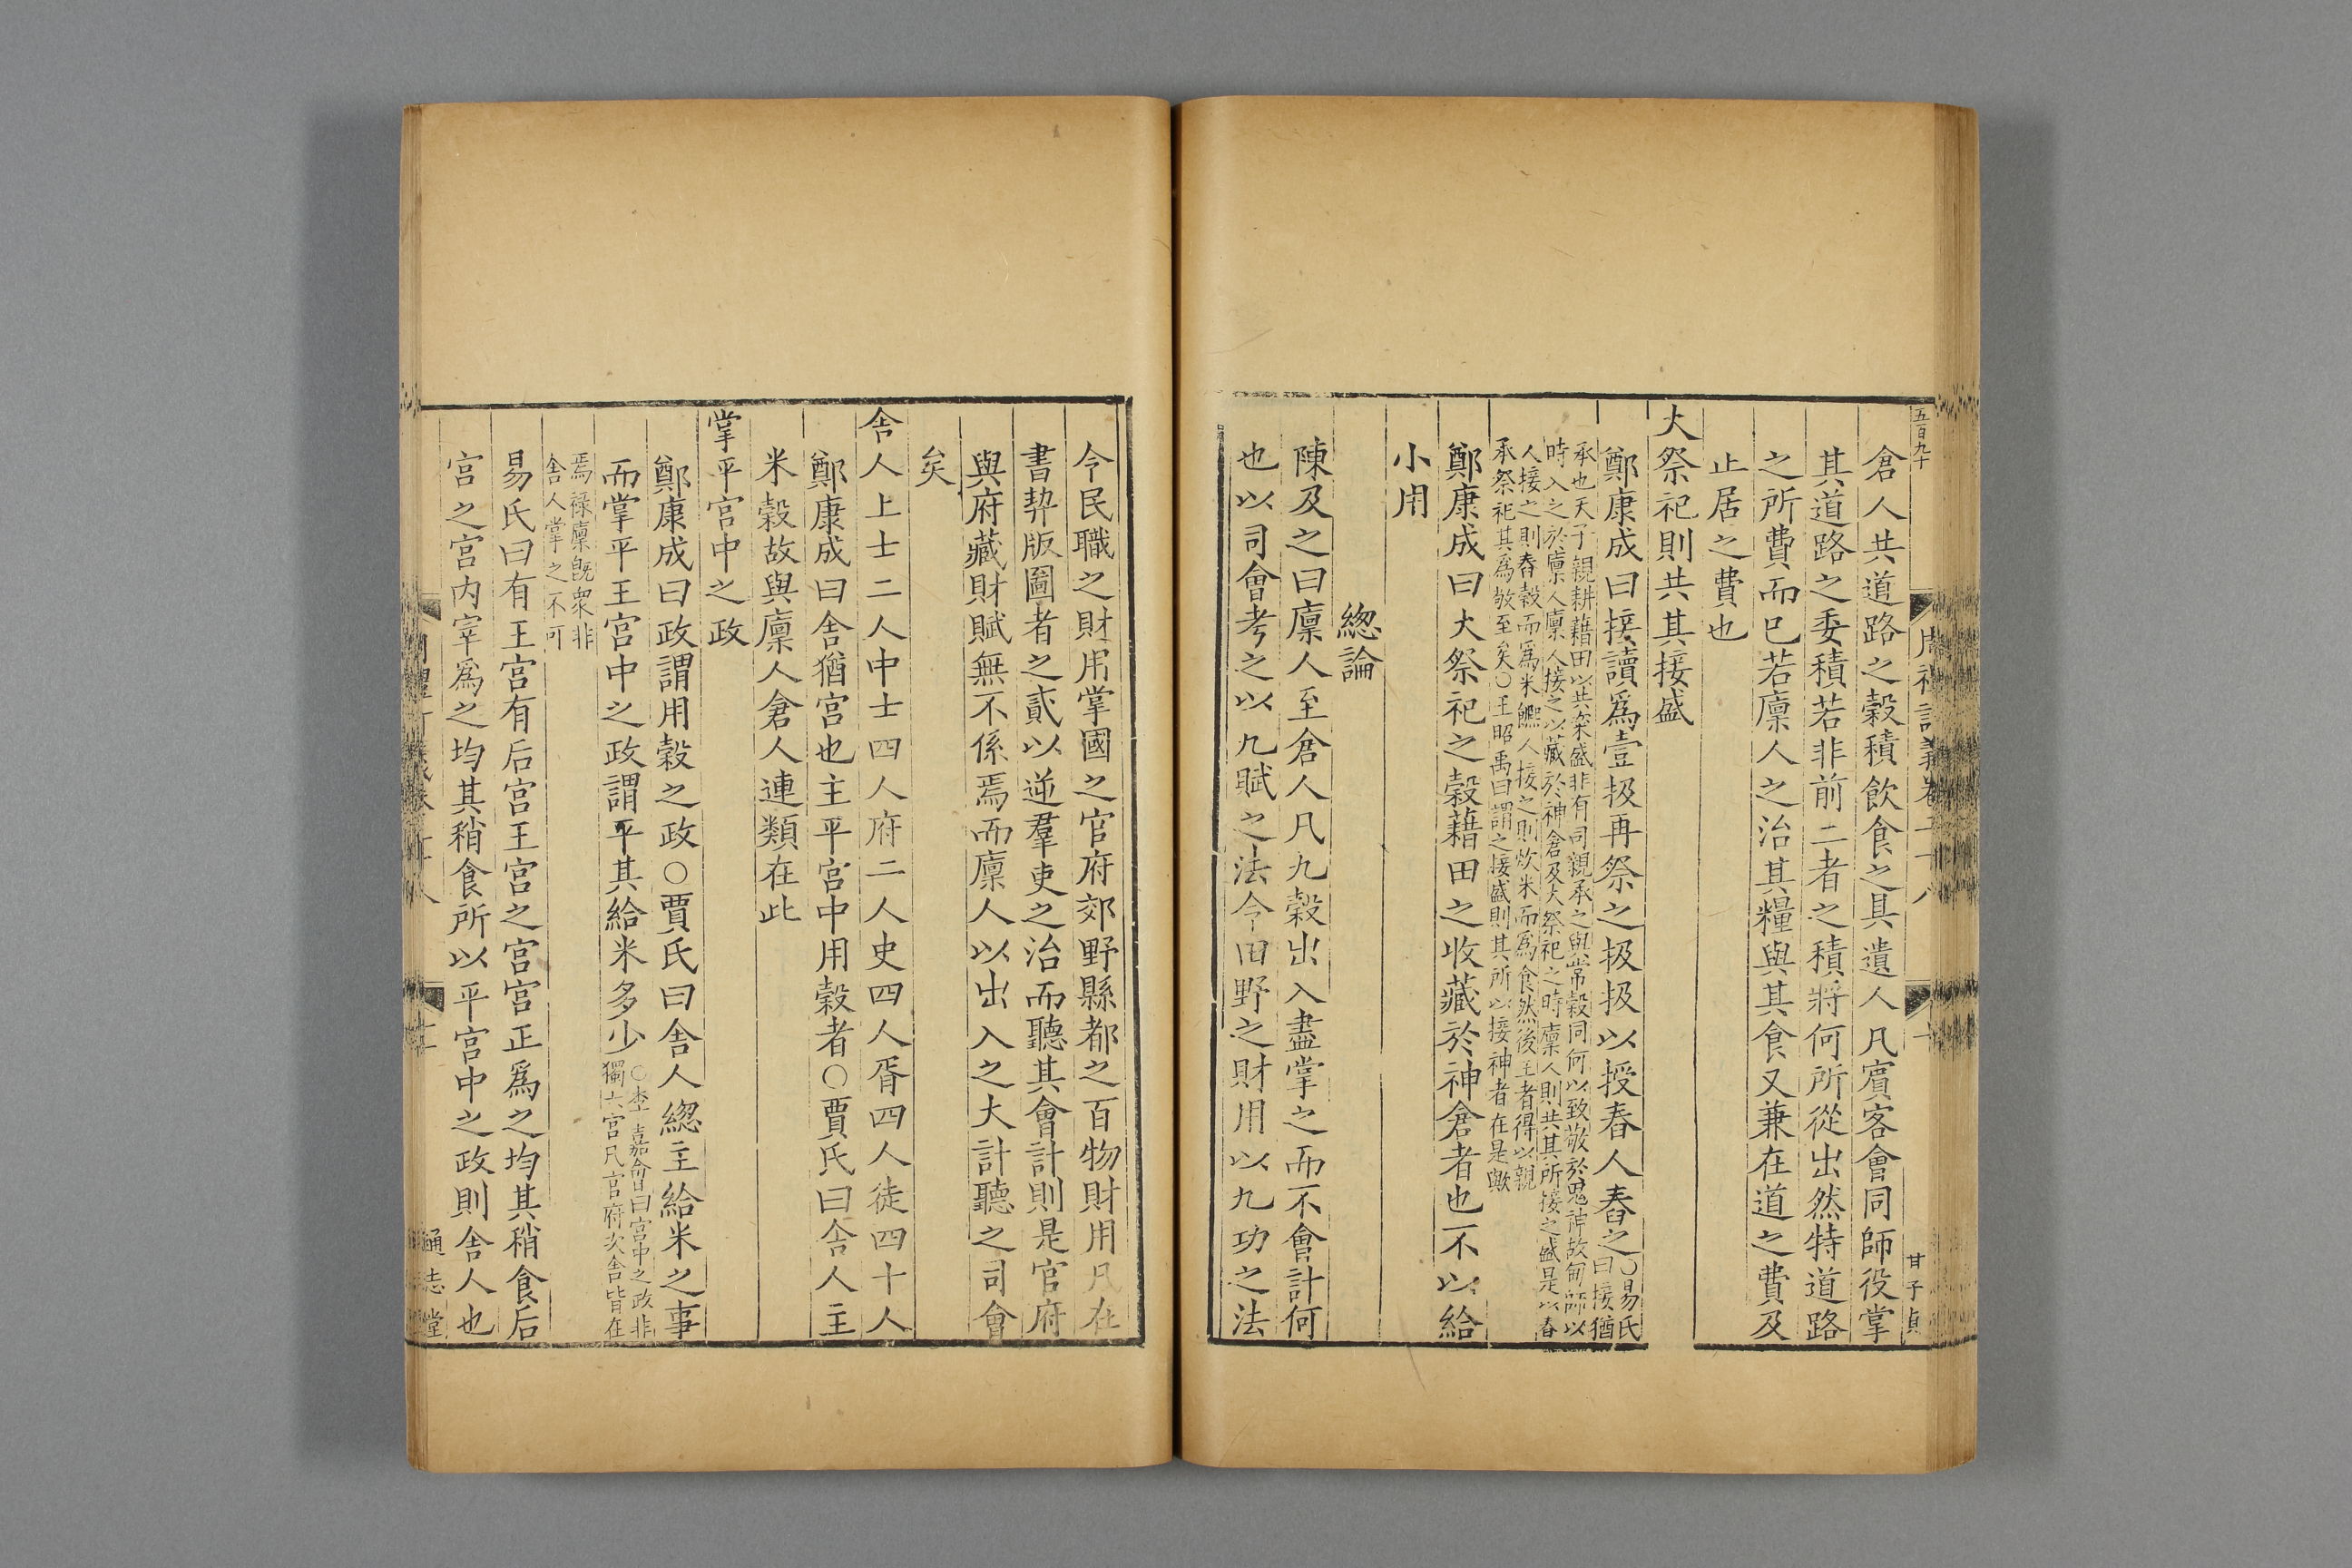 五百九十
倉人共道路之穀積飲食之具遺人凡賓客會同師役掌
其道路之委積若非前二者之積將何所從出然特道路
之所費而已若廪人之治其糧與其食又兼在道之費及
止居之費也
大祭祀則共其接盛
鄭康成曰接讀爲壹扱再祭之扱扱以授舂人舂之○易氏曰接猶
承也天子親耕藉田以共粢盛非有司親承之與常穀同何以致敬於鬼神故甸師以
時入之於廪人廪人接之以藏於神倉及大祭祀之時廪人則共其所接之盛是以舂
人接之則舂穀而爲米饎人接之則炊米而爲食然後王者得以親
承祭祀其爲敬至矣○王昭禹曰謂之接盛則其所以接神者在是歟
鄭康成曰大祭祀之穀藉田之收藏於神倉者也不以給
小用
總論
陳及之曰廪人至倉人凡九穀出入盡掌之而不會計何
也以司會考之以九賦之法令田野之財用以九功之法
甘子貞
今民職之財用掌國之官府郊野縣都之百物財用凡在
書契版圖者之貳以逆羣吏之治而聽其會計則是官府
與府藏財賦無不係焉而廪人以出入之大計聽之司會
矣
舍人上士二人中士四人府二人史四人胥四人徒四十人
鄭康成曰舍猶宫也主平宫中用穀者○賈氏曰舍人主
米穀故與廪人倉人連類在此
掌平宫中之政
鄭康成曰政謂用穀之政○賈氏曰舍人總主給米之事
而掌平王宫中之政謂平其給米多少○李嘉會曰宫中之政非
獨士宫凡官府次舍皆在
焉祿廪旣衆非
舍人掌之不可
易氏曰有王宫有后宫王宫之宫宫正爲之均其稍食后
宫之宫内宰爲之均其稍食所以平宫中之政則舍人也
通志堂